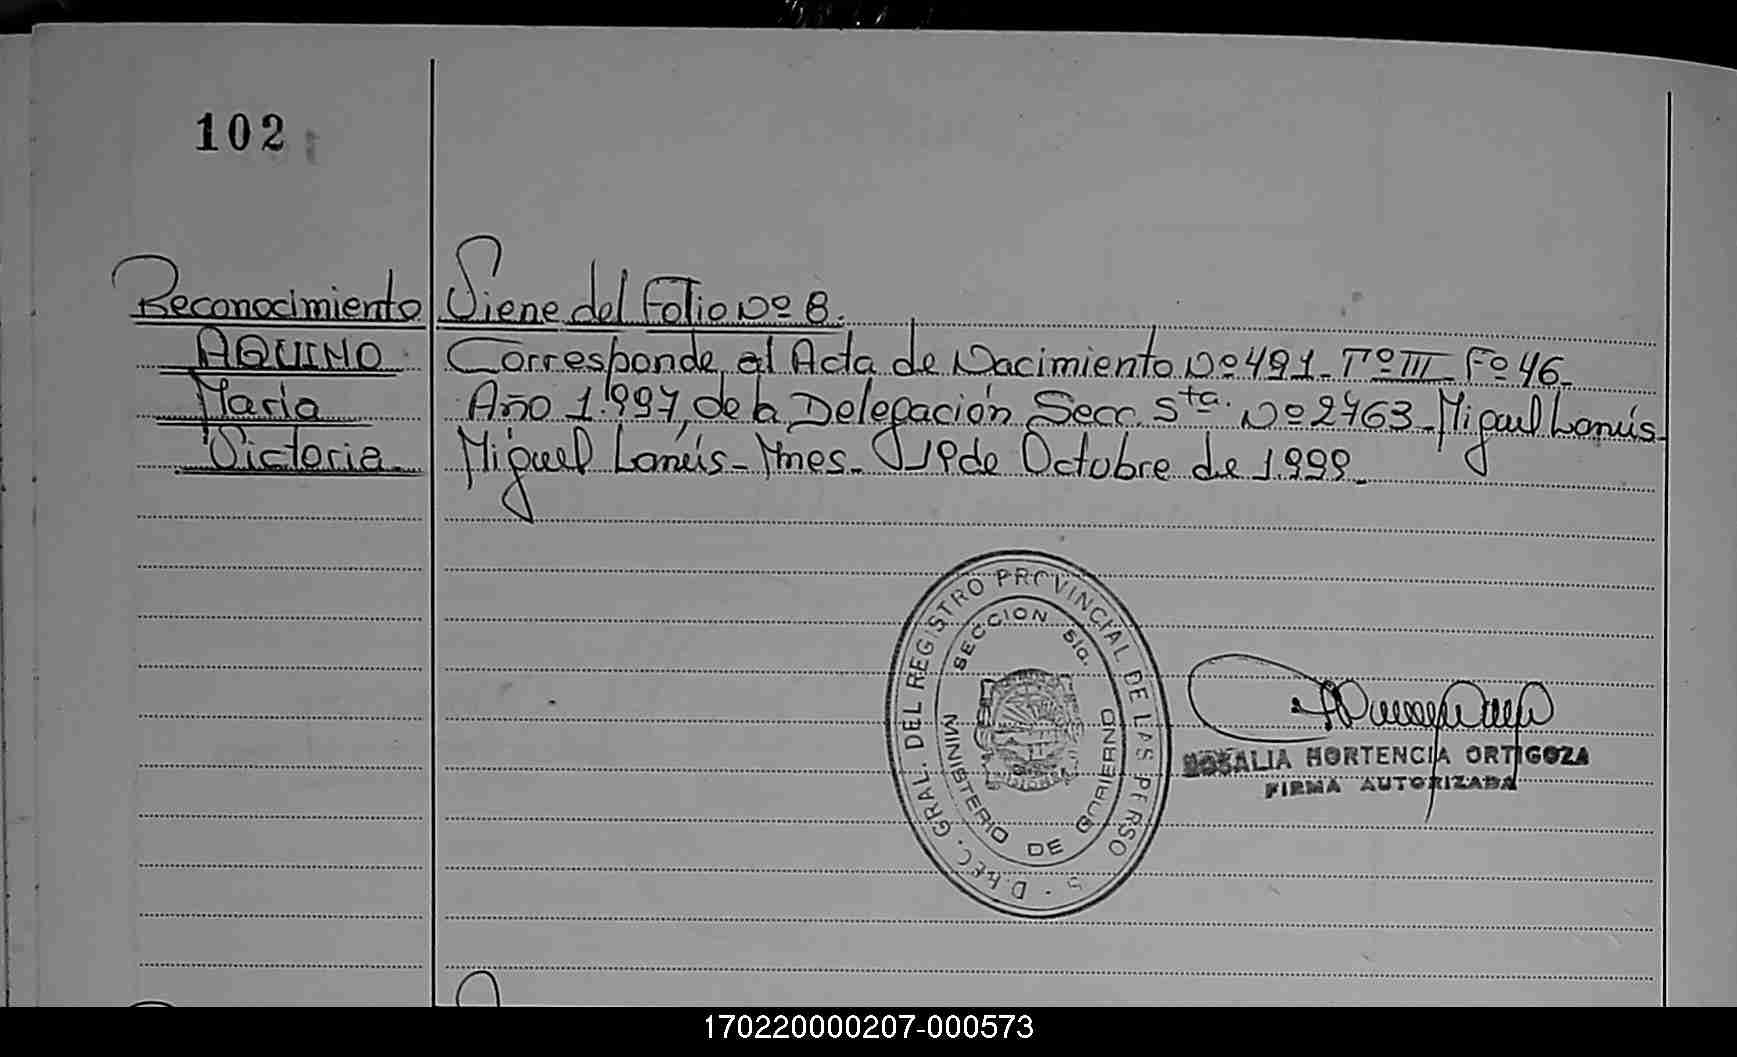 102
Reconocimiento
AQUINO
María
Victoria
Viene del Folio Nº 8.
Corresponde al Acta de Nacimiento Nº 491 - Tº III - Fº 46 -
Año 1.997, de la Delegación Secc. Sta. Nº 2463 - Miguel Lanús -
Miguel Lanús - Mnes - 19 de Octubre de 1.999 -
DIREC. GRAL. DEL REGISTRO PROVINCIAL DE LAS PERSONAS
SECCION Sta.
MINISTERIO DE GOBIERNO
ROSALIA HORTENCIA ORTIGOZA
FIRMA AUTORIZADA
170220000207-000573